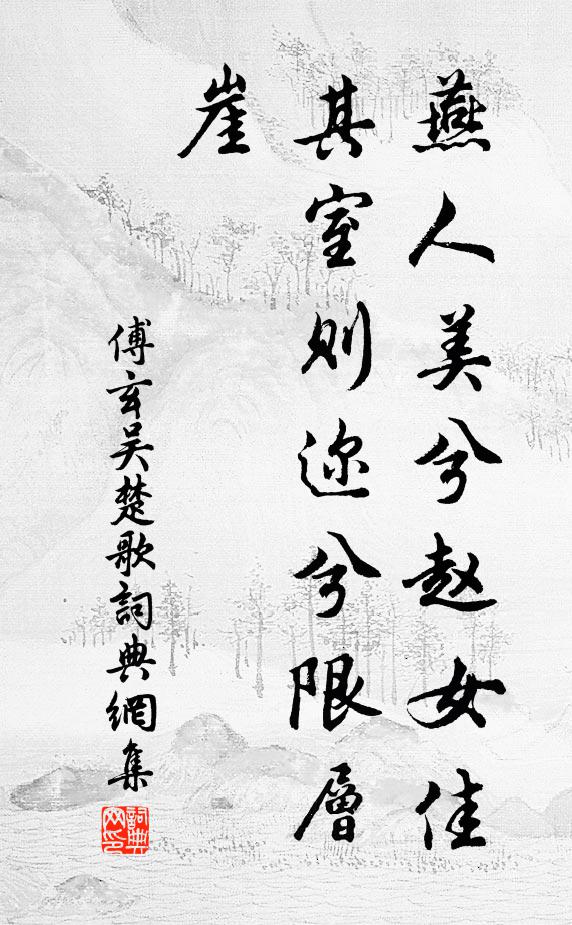 燕人美兮赵女佳
其室则迩兮限層
崖
傅玄吴楚歌詞典網集